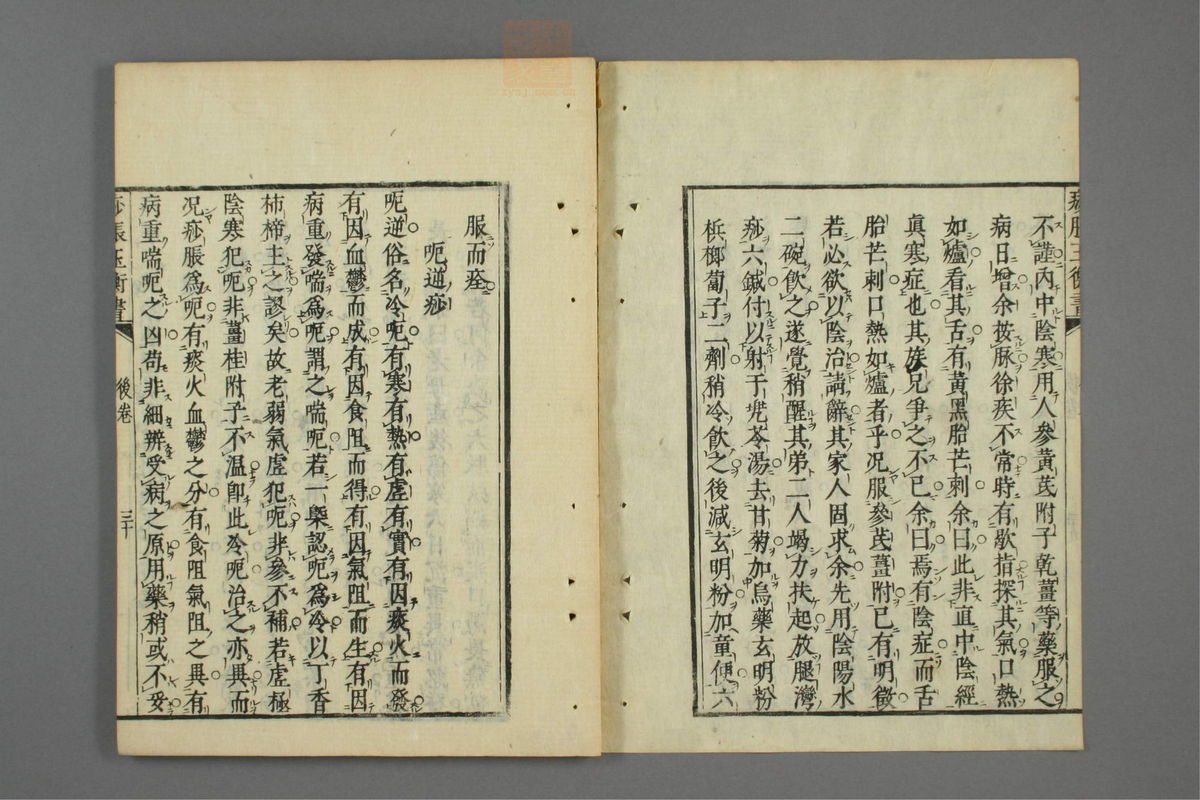 痧脹玉衡書
不謹內中陰寒用人參黃芪附子乾薑等藥服之
病日增余按脉徐疾不常時有歇指探其氣口熱
如爐看其舌有黃黑胎芒刺余曰此非直中陰經
眞寒症也其族兄爭之不已余曰焉有陰症而舌
胎芒刺口熱如爐者乎况服參芪薑附已有明徵
若必欲以陰治請辭其家人固求余先用陰陽水
二碗飲之遂覺稍醒其弟二人竭力扶起放腿灣
痧六鍼付以射干兠苓湯去甘菊加烏藥玄明粉
梹榔蔔子二劑稍冷飲之後減玄明粉加童便六
服而痊
呃逆痧
呃逆俗名冷呃有寒有熱有虛有實有因痰火而發
有因血鬱而成有因食阻而得有因氣阻而生有因
病重發喘爲呃謂之喘呃若一槩認呃爲冷以丁香
柿楴主之謬矣故老弱氣虛犯呃非參不補若虛極
陰寒犯呃非薑桂附子不溫卽此冷呃治之亦異而
况痧脹爲呃有痰火血鬱之分有食阻氣阻之異有
病重喘呃之凶苟非細辨受病之原用藥稍或不妥
痧脹玉衡書
後卷
三十